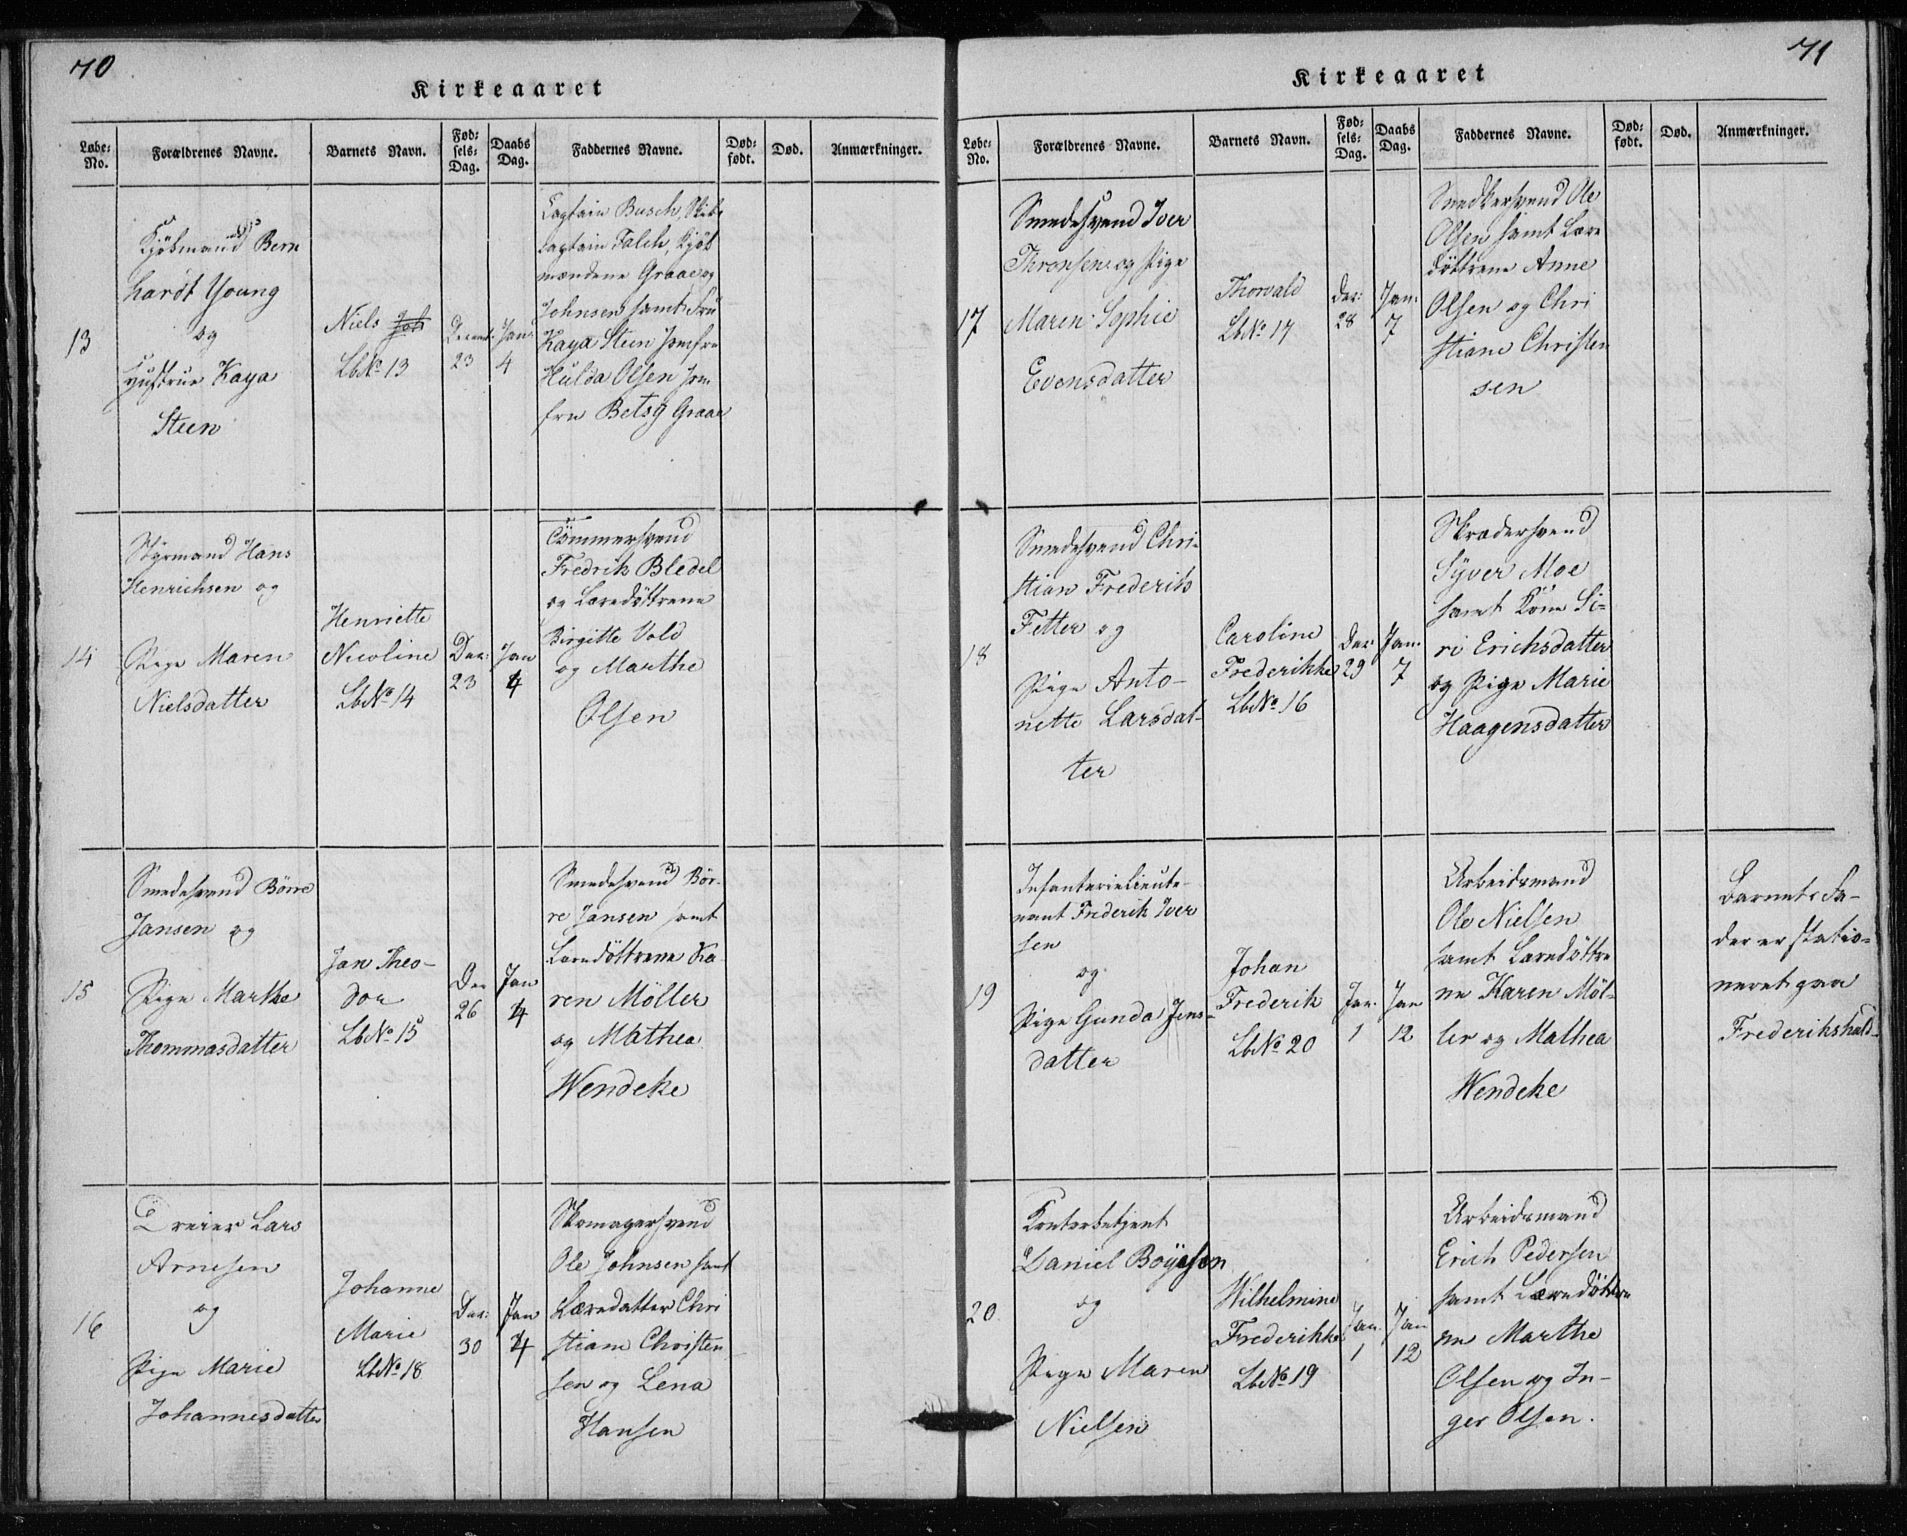 70
Kirkeaaret
Løbe-No.
Forældrenes Navne.
Barnets Navn.
Fødselsdag.
Daabs Dag.
Faddernes Navne.
Dødfødt.
Død.
Anmærkninger.
13
Kjöbmand Bern
hardt Young
og
Hustrue Kaya
Steen
Niels
LbNo 13
Decemb.
23
Jan
4
Captain Busch, Skibs
captain Falch, Kjöb
mændene Graae og
Johnsen samt Fru
Kaya Steen Jomfru
Hulda Olsen Jom
fru Betsy Graae
14
Styrmand Hans
Henrichsen og
Pige Maren
Nielsdatter
Henriette
Nicoline
LbNo 14
Dec:
23
Jan
4
Tömmersvend
Fredrik Bledel
og Læredöttrene
Birgitte Vold
og Marthe
Olsen
15
Smedesvend Börre
Jansen og
Pige Marthe
Thommasdatter
Jan Theo-
dor
LbNo 15
Dec
26
Jan
4
Smedesvend Bör-
re Jansen samt
Læredöttrene Ka
ren Möller
og Mathea
Wendeke
16
Dreier Lars
Arnesen
og
Pige Marie
Johannesdatter
Johanne
Marie
LbNo 18
Dec:
30
Jan
4
Skomagersvend
Ole Johnsen samt
Læredatter Chri
stiane Christen
sen og Lena
Hansen
71
Kirkeaaret
Løbe-No.
Forældrenes Navne.
Barnets Navn.
Fødselsdag.
Daabs Dag.
Faddernes Navne.
Dødfødt.
Død.
Anmærkninger.
17
Smedesvend Iver
Thronsen og Pige
Maren Sophie
Evensdatter
Thorvald
LbNo 17
Dec:
28
Jan.
7
Snedkersvend Ole
Olsen samt Lære
döttrene Anne
Olsen og Chri
stiane Christen
sen
18
Smedesvend Chri-
stian Frederik
Fetter og
Pige Anto-
nette Larsdat-
ter
Caroline
Frederikke
LbNo 16
Dec
29
Jan.
7
Skrædersvend
Syver Moe
samt Kone Si-
ri Erichsdatter
og Pige Marie
Haagensdatter
19
Infanterielieute-
nant Frederik Iver
sen
og
Pige Gunda Jens-
datter
Johan
Frederik
LbNo 20
Jan.
1
Jan
12
Arbeidsmand
Ole Nielsen
samt Læredöttre
ne Karen Möl-
ler og Mathea
Wendeke
Barnets Fa-
der er statio-
neret paa
Frederikshald
20
Kontorbetjent
Daniel Boyesen
og
Pige Maren
Nielsen
Wilhelmine
Frederikke
LbNo 19
Jan.
1
Jan
12
Arbeidsmand
Erich Pedersen
samt Læredöttre
ne Marthe
Olsen og In-
ger Olsen.